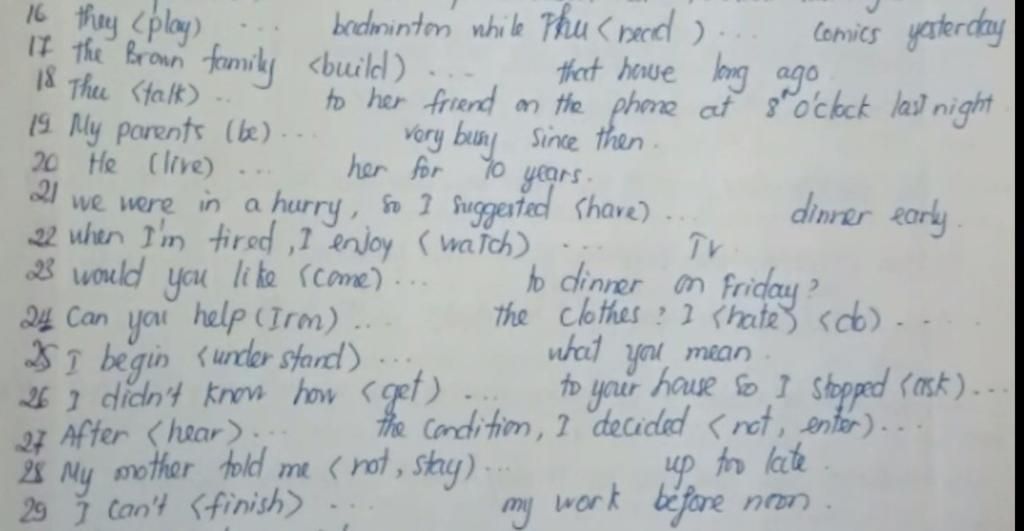 16 they (play) ... badminton while Thu (read) ... comics yesterday
17 the Brown family (build) ... that house long ago.
18 Thu (talk) .. to her friend on the phone at 8 o'clock last night
19 My parents (be) ... very busy since then.
20 He (live) ... her for 10 years.
21 we were in a hurry, so I suggested (have) ... dinner early.
22 when I'm tired, I enjoy (watch) ... TV
23 would you like (come) ... to dinner on Friday?
24 Can you help (Iron) ... the clothes? I (hate) (do) ...
25 I begin (under stand) ... what you mean.
26 I didn't know how (get) ... to your house so I stopped (ask) ...
27 After (hear) ... the condition, I decided (not, enter) ...
28 My mother told me (not, stay) ... up too late.
29 I can't (finish) ... my work before noon.